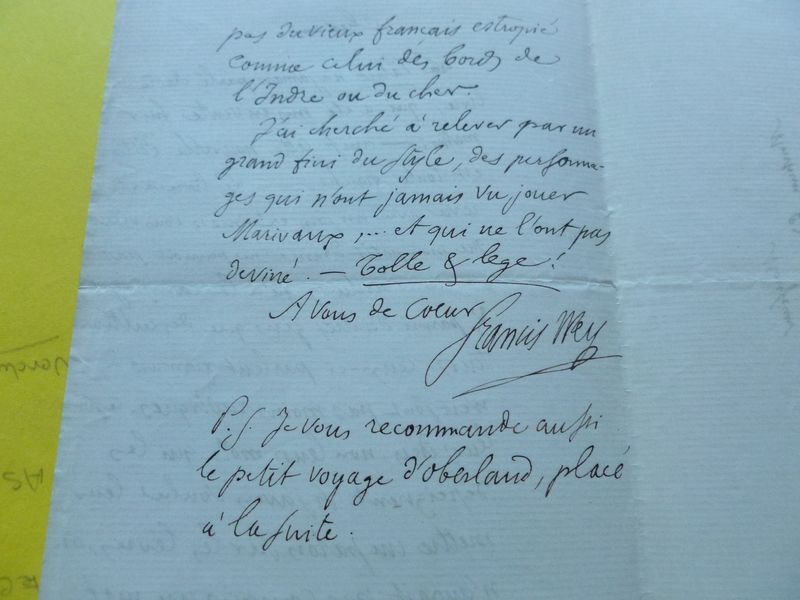 pas du vieux français estropié
comme celui des bords de
l'Indre ou du cher.
J'ai cherché à relever par un
grand fini du style, des personna-
ges qui n'ont jamais vu jouer
Marivaux,... et qui ne l'ont pas
deviné. — Tolle & lege !
A vous de cœur
Francis Wey
P. S. Je vous recommande aussi
le petit voyage d'oberland, placé
à la suite.